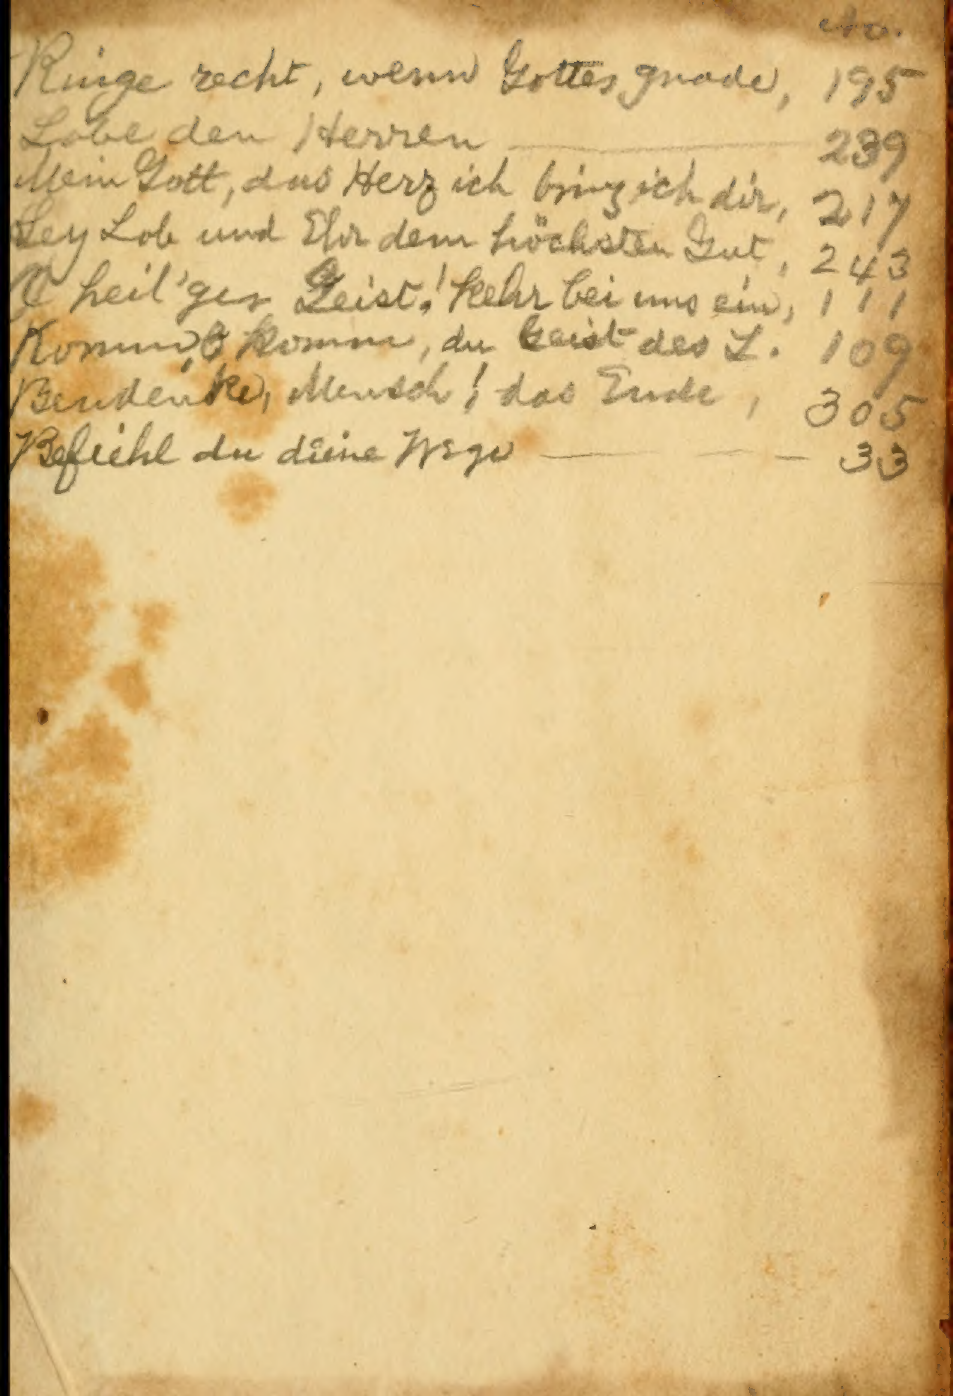 No.
Ringe recht, wenn Gottes gnade, 195
Lobe den Herren 239
Mein Gott, das Herz ich bring ich dir, 217
Sey Lob und Ehr dem höchsten Gut, 243
O heil'ger Geist! kehr bei uns ein, 111
Komm, O komm, du Geist des L. 109
Bendenke, Mensch! das Ende, 305
Befiehl du deine Wege 33